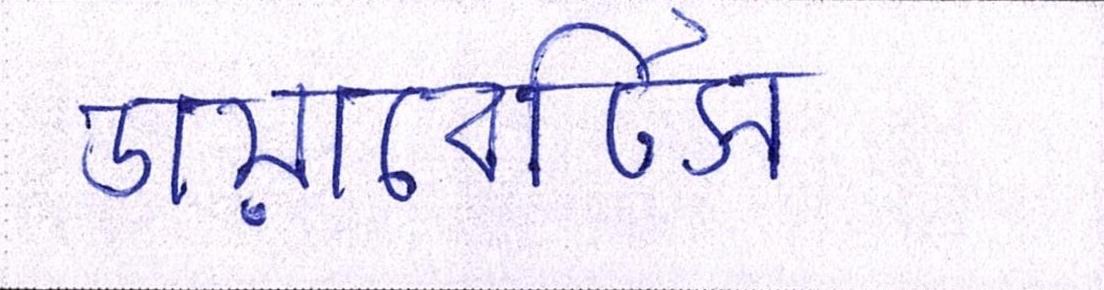 ডায়াবেটিস